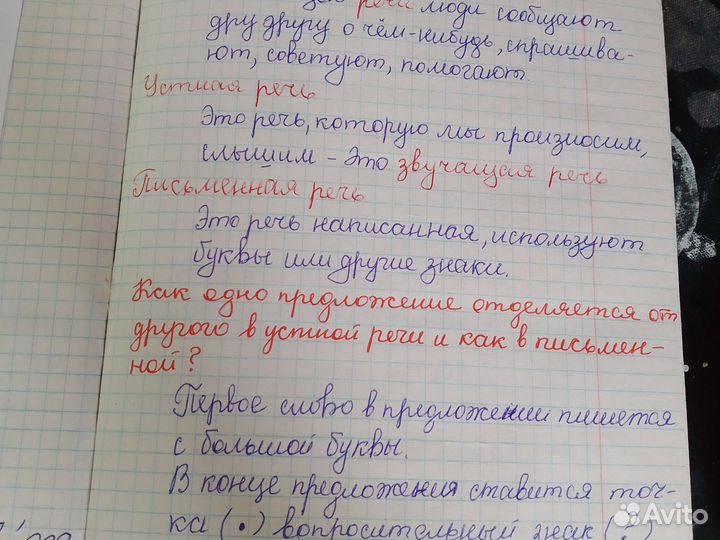 речи люди сообщают
дру другу о чём-нибудь, спрашива-
ют, советуют, помогают.
Устная речь
Это речь, которую мы произносим,
слышим - это звучащая речь
Письменная речь
Это речь написанная, используют
буквы или другие знаки.
Как одно предложение отделяется от
другого в устной речи и как в письмен-
ной?
Первое слово в предложении пишется
с большой буквы.
В конце предложения ставится точ-
ка (.) вопросительный знак (
Avito